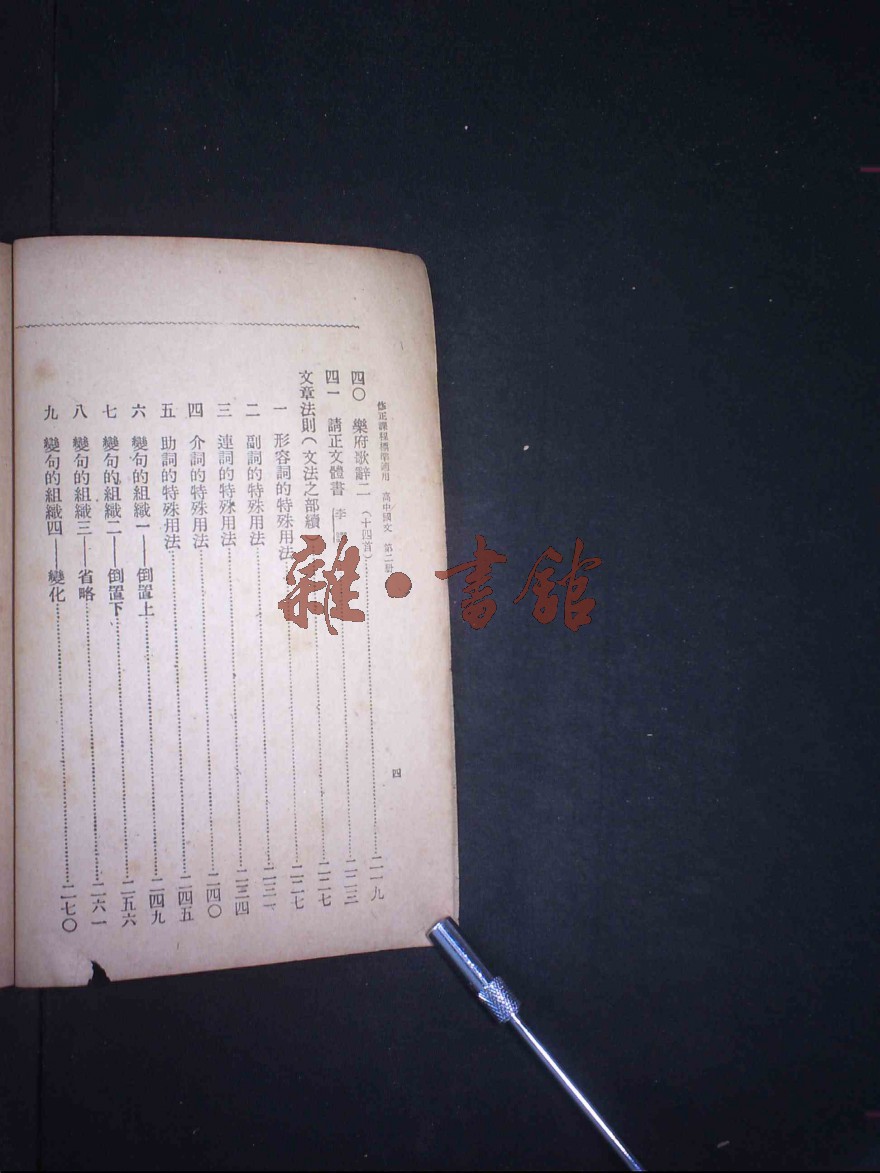 修正課程標準適用 高中國文 第二册
四
四〇 樂府歌辭二(十四首)……二一九
四一 請正文體書 李……二二三
文章法則(文法之部續……二二七
一 形容詞的特殊用法……二二七
二 副詞的特殊用法……二三一
三 連詞的特殊用法……二三四
四 介詞的特殊用法……二四〇
五 助詞的特殊用法……二四五
六 變句的組織一——倒置上……二四九
七 變句的組織二——倒置下……二五六
八 變句的組織三——省略……二六一
九 變句的組織四——變化……二七〇
雜·書館